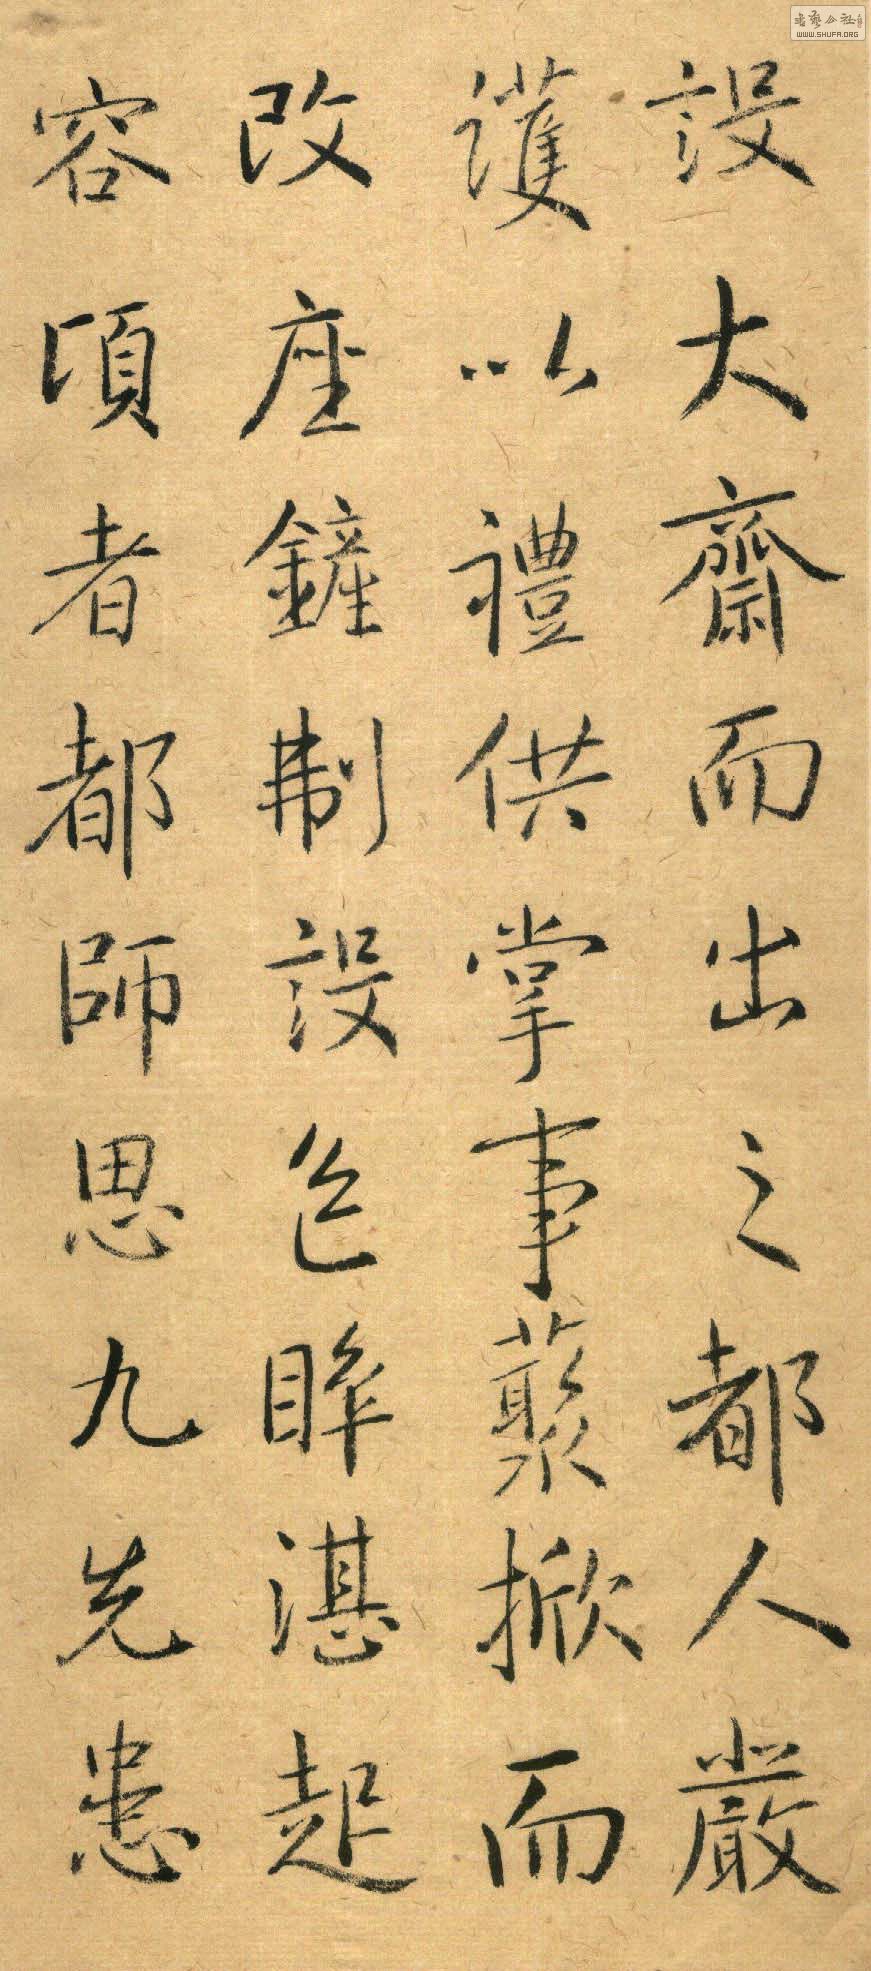 設大齋而出之都人嚴
護以禮供掌事蘂掀而
改座鏟制設色眸湛起
容頃者都師思九先患
WWW.SHUFA.ORG